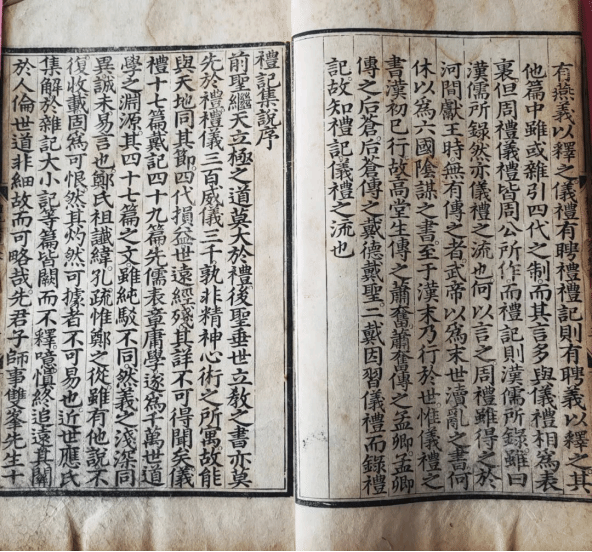 有燕義以釋之儀禮有聘禮禮記則有聘義以釋之其
他篇中雖或雜引四代之制而其言多與儀禮相為表
裏但周禮儀禮皆周公所作而禮記則漢儒所錄雖曰
漢儒所錄然亦儀禮之流也何以言之周禮雖得之於
河間獻王時無有傳之者武帝以為末世瀆亂之書何
休以為六國陰謀之書至于漢末乃行於世惟儀禮之
書漢初已行故高堂生傳之蕭奮蕭奮傳之孟卿孟卿
傳之后蒼后蒼傳之戴德戴聖二戴因習儀禮而錄禮
記故知禮記儀禮之流也
禮記集說序
前聖繼天立極之道莫大於禮後聖垂世立教之書亦莫
先於禮禮儀三百威儀三千孰非精神心術之所寓故能
與天地同其節四代損益世遠經殘其詳不可得聞矣儀
禮十七篇戴記四十九篇先儒表章庸學遂為千萬世道
學之淵源其四十七篇之文雖純駁不同然義之淺深同
異誠未易言也鄭氏祖讖緯孔疏惟鄭之從雖有他說不
復收載固為可恨然其灼然可據者不可易也近世應氏
集解於雜記大小記等篇皆闕而不釋噫慎終追遠其關
於人倫世道非細故而可略哉先君子師事雙峯先生十